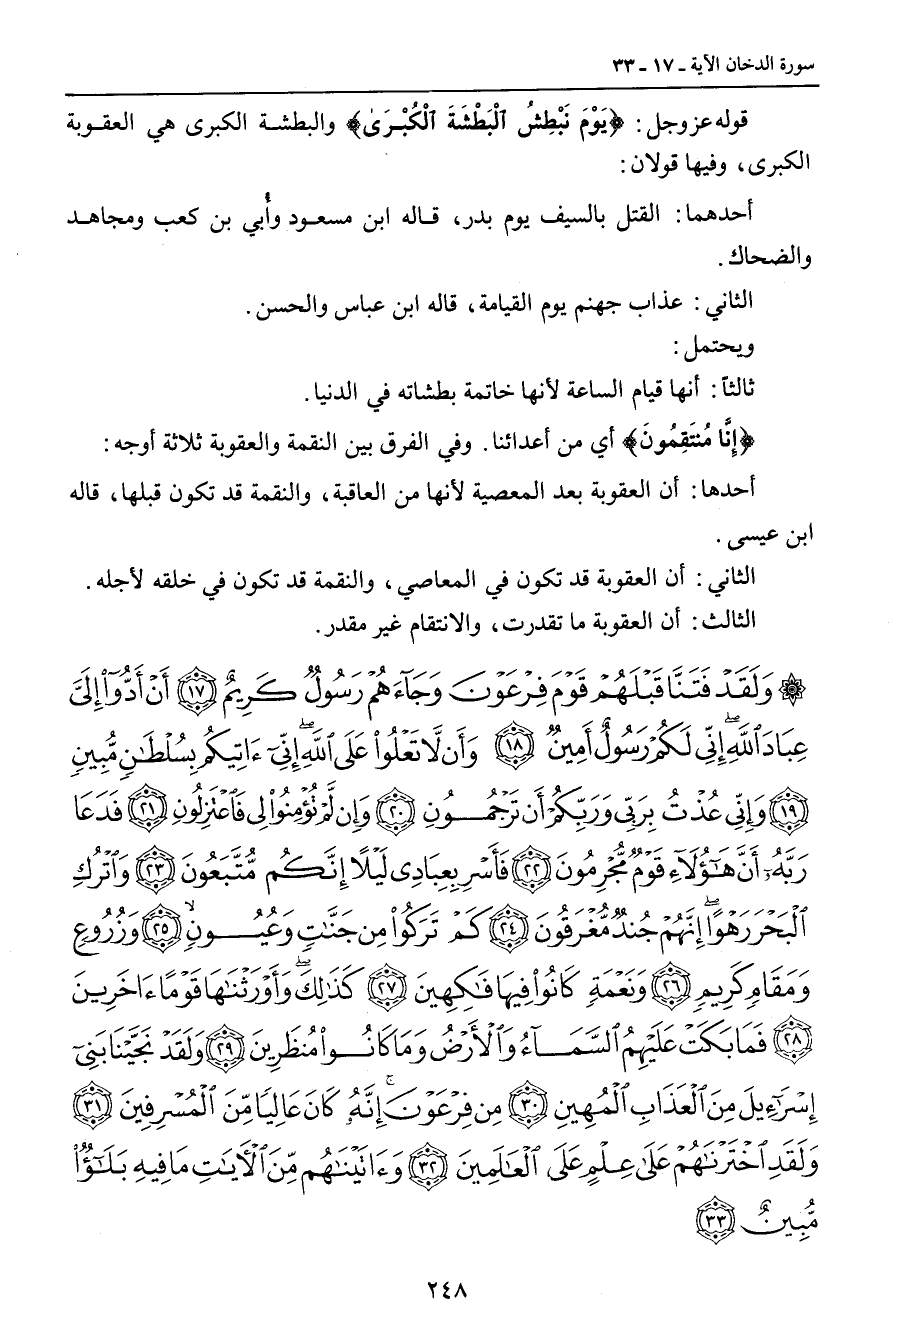 سورة الدخان الآية ـ ١٧ ـ ٣٣
قوله عز وجل: ﴿يَوْمَ نَبْطِشُ ٱلْبَطْشَةَ ٱلْكُبْرَىٰ﴾ والبطشة الكبرى هي العقوبة
الكبرى، وفيها قولان:
أحدهما: القتل بالسيف يوم بدر، قاله ابن مسعود وأُبي بن كعب ومجاهد
والضحاك.
الثاني: عذاب جهنم يوم القيامة، قاله ابن عباس والحسن.
ويحتمل:
ثالثاً: أنها قيام الساعة لأنها خاتمة بطشاته في الدنيا.
﴿إِنَّا مُنتَقِمُونَ﴾ أي من أعدائنا. وفي الفرق بين النقمة والعقوبة ثلاثة أوجه:
أحدها: أن العقوبة بعد المعصية لأنها من العاقبة، والنقمة قد تكون قبلها، قاله
ابن عيسى.
الثاني: أن العقوبة قد تكون في المعاصي، والنقمة قد تكون في خلقه لأجله.
الثالث: أن العقوبة ما تقدرت، والانتقام غير مقدر.
۞ وَلَقَدْ فَتَنَّا قَبْلَهُمْ قَوْمَ فِرْعَوْنَ وَجَآءَهُمْ رَسُولٌ كَرِيمٌ ١٧ أَنْ أَدُّوٓا۟ إِلَىَّ
عِبَادَ ٱللَّهِ ۖ إِنِّى لَكُمْ رَسُولٌ أَمِينٌ ١٨ وَأَن لَّا تَعْلُوا۟ عَلَى ٱللَّهِ ۖ إِنِّىٓ ءَاتِيكُم بِسُلْطَٰنٍ مُّبِينٍ
١٩ وَإِنِّى عُذْتُ بِرَبِّى وَرَبِّكُمْ أَن تَرْجُمُونِ ٢٠ وَإِن لَّمْ تُؤْمِنُوا۟ لِى فَٱعْتَزِلُونِ ٢١ فَدَعَا
رَبَّهُۥٓ أَنَّ هَٰٓؤُلَآءِ قَوْمٌ مُّجْرِمُونَ ٢٢ فَأَسْرِ بِعِبَادِى لَيْلًا إِنَّكُم مُّتَّبَعُونَ ٢٣ وَٱتْرُكِ
ٱلْبَحْرَ رَهْوًا ۖ إِنَّهُمْ جُندٌ مُّغْرَقُونَ ٢٤ كَمْ تَرَكُوا۟ مِن جَنَّٰتٍ وَعُيُونٍ ۙ ٢٥ وَزُرُوعٍ
وَمَقَامٍ كَرِيمٍ ٢٦ وَنَعْمَةٍ كَانُوا۟ فِيهَا فَٰكِهِينَ ٢٧ كَذَٰلِكَ ۖ وَأَوْرَثْنَٰهَا قَوْمًا ءَاخَرِينَ
٢٨ فَمَا بَكَتْ عَلَيْهِمُ ٱلسَّمَآءُ وَٱلْأَرْضُ وَمَا كَانُوا۟ مُنظَرِينَ ٢٩ وَلَقَدْ نَجَّيْنَا بَنِىٓ
إِسْرَٰٓءِيلَ مِنَ ٱلْعَذَابِ ٱلْمُهِينِ ٣٠ مِن فِرْعَوْنَ ۚ إِنَّهُۥ كَانَ عَالِيًا مِّنَ ٱلْمُسْرِفِينَ ٣١
وَلَقَدِ ٱخْتَرْنَٰهُمْ عَلَىٰ عِلْمٍ عَلَى ٱلْعَٰلَمِينَ ٣٢ وَءَاتَيْنَٰهُم مِّنَ ٱلْءَايَٰتِ مَا فِيهِ بَلَٰٓؤٌا۟
مُّبِينٌ ٣٣
٢٤٨